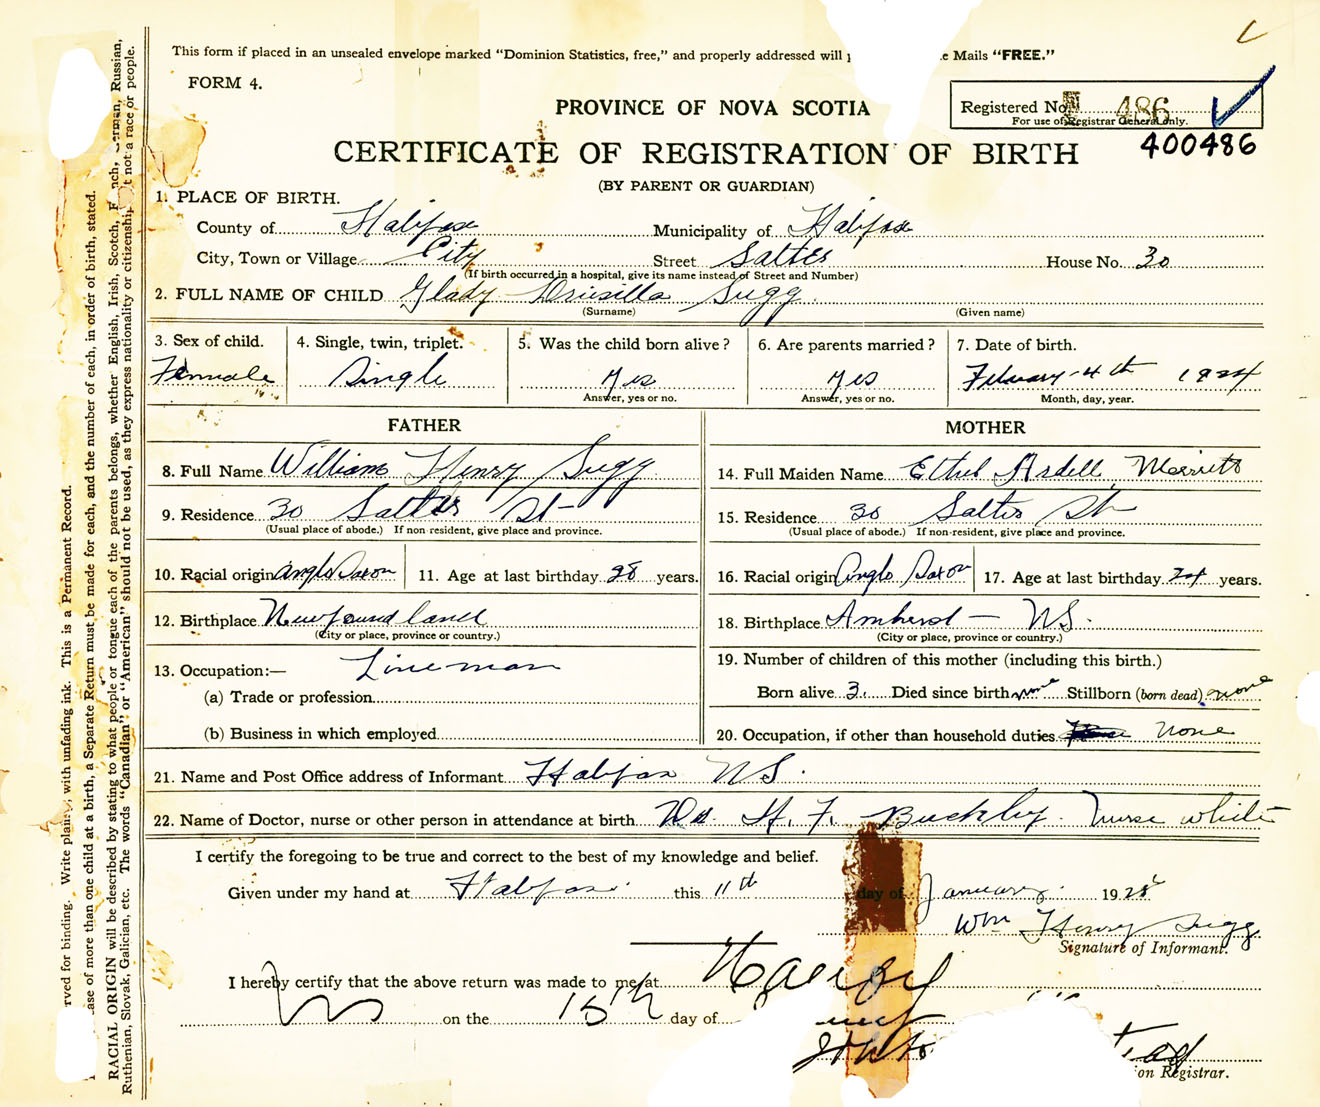 This form if placed in an unsealed envelope marked "Dominion Statistics, free," and properly addressed will Mails "FREE."
FORM 4.
PROVINCE OF NOVA SCOTIA
Registered No. 486
For use of Registrar General only.
400486
CERTIFICATE OF REGISTRATION OF BIRTH
(BY PARENT OR GUARDIAN)
1. PLACE OF BIRTH.
County of Halifax Municipality of Halifax
City, Town or Village City Street Salter House No. 30
(If birth occurred in a hospital, give its name instead of Street and Number)
2. FULL NAME OF CHILD Glady Drusilla Sugg
(Surname) (Given name)
3. Sex of child. 4. Single, twin, triplet. 5. Was the child born alive? 6. Are parents married? 7. Date of birth.
Female Single Yes Yes February 4th 1924
Answer, yes or no. Answer, yes or no. Month, day, year.
FATHER MOTHER
8. Full Name William Henry Sugg 14. Full Maiden Name Ethel Ardell Merritt
9. Residence 30 Salter St 15. Residence 30 Salter St
(Usual place of abode.) If non-resident, give place and province. (Usual place of abode.) If non-resident, give place and province.
10. Racial origin Anglo Saxon 11. Age at last birthday 28 years. 16. Racial origin Anglo Saxon 17. Age at last birthday 24 years.
12. Birthplace Newfoundland 18. Birthplace Amherst - NS.
(City or place, province or country.) (City or place, province or country.)
13. Occupation:— Lineman 19. Number of children of this mother (including this birth.)
(a) Trade or profession Born alive 3. Died since birth none Stillborn (born dead) none
(b) Business in which employed 20. Occupation, if other than household duties None
21. Name and Post Office address of Informant Halifax NS.
22. Name of Doctor, nurse or other person in attendance at birth Dr. H. F. Buckley. Nurse White
I certify the foregoing to be true and correct to the best of my knowledge and belief.
Given under my hand at Halifax this 11th day of January 1928
Wm Henry Sugg
Signature of Informant.
I hereby certify that the above return was made to me at
on the 15th day of
ion Registrar.
rved for binding. Write plainly, with unfading ink. This is a Permanent Record.
ase of more than one child at a birth, a Separate Return must be made for each, and the number of each, in order of birth, stated.
RACIAL ORIGIN will be described by stating to what people or tongue each of the parents belongs, whether English, Irish, Scotch, French, German, Russian,
Ruthenian, Slovak, Galician, etc. The words "Canadian" or "American" should not be used, as they express nationality or citizenship not a race or people.